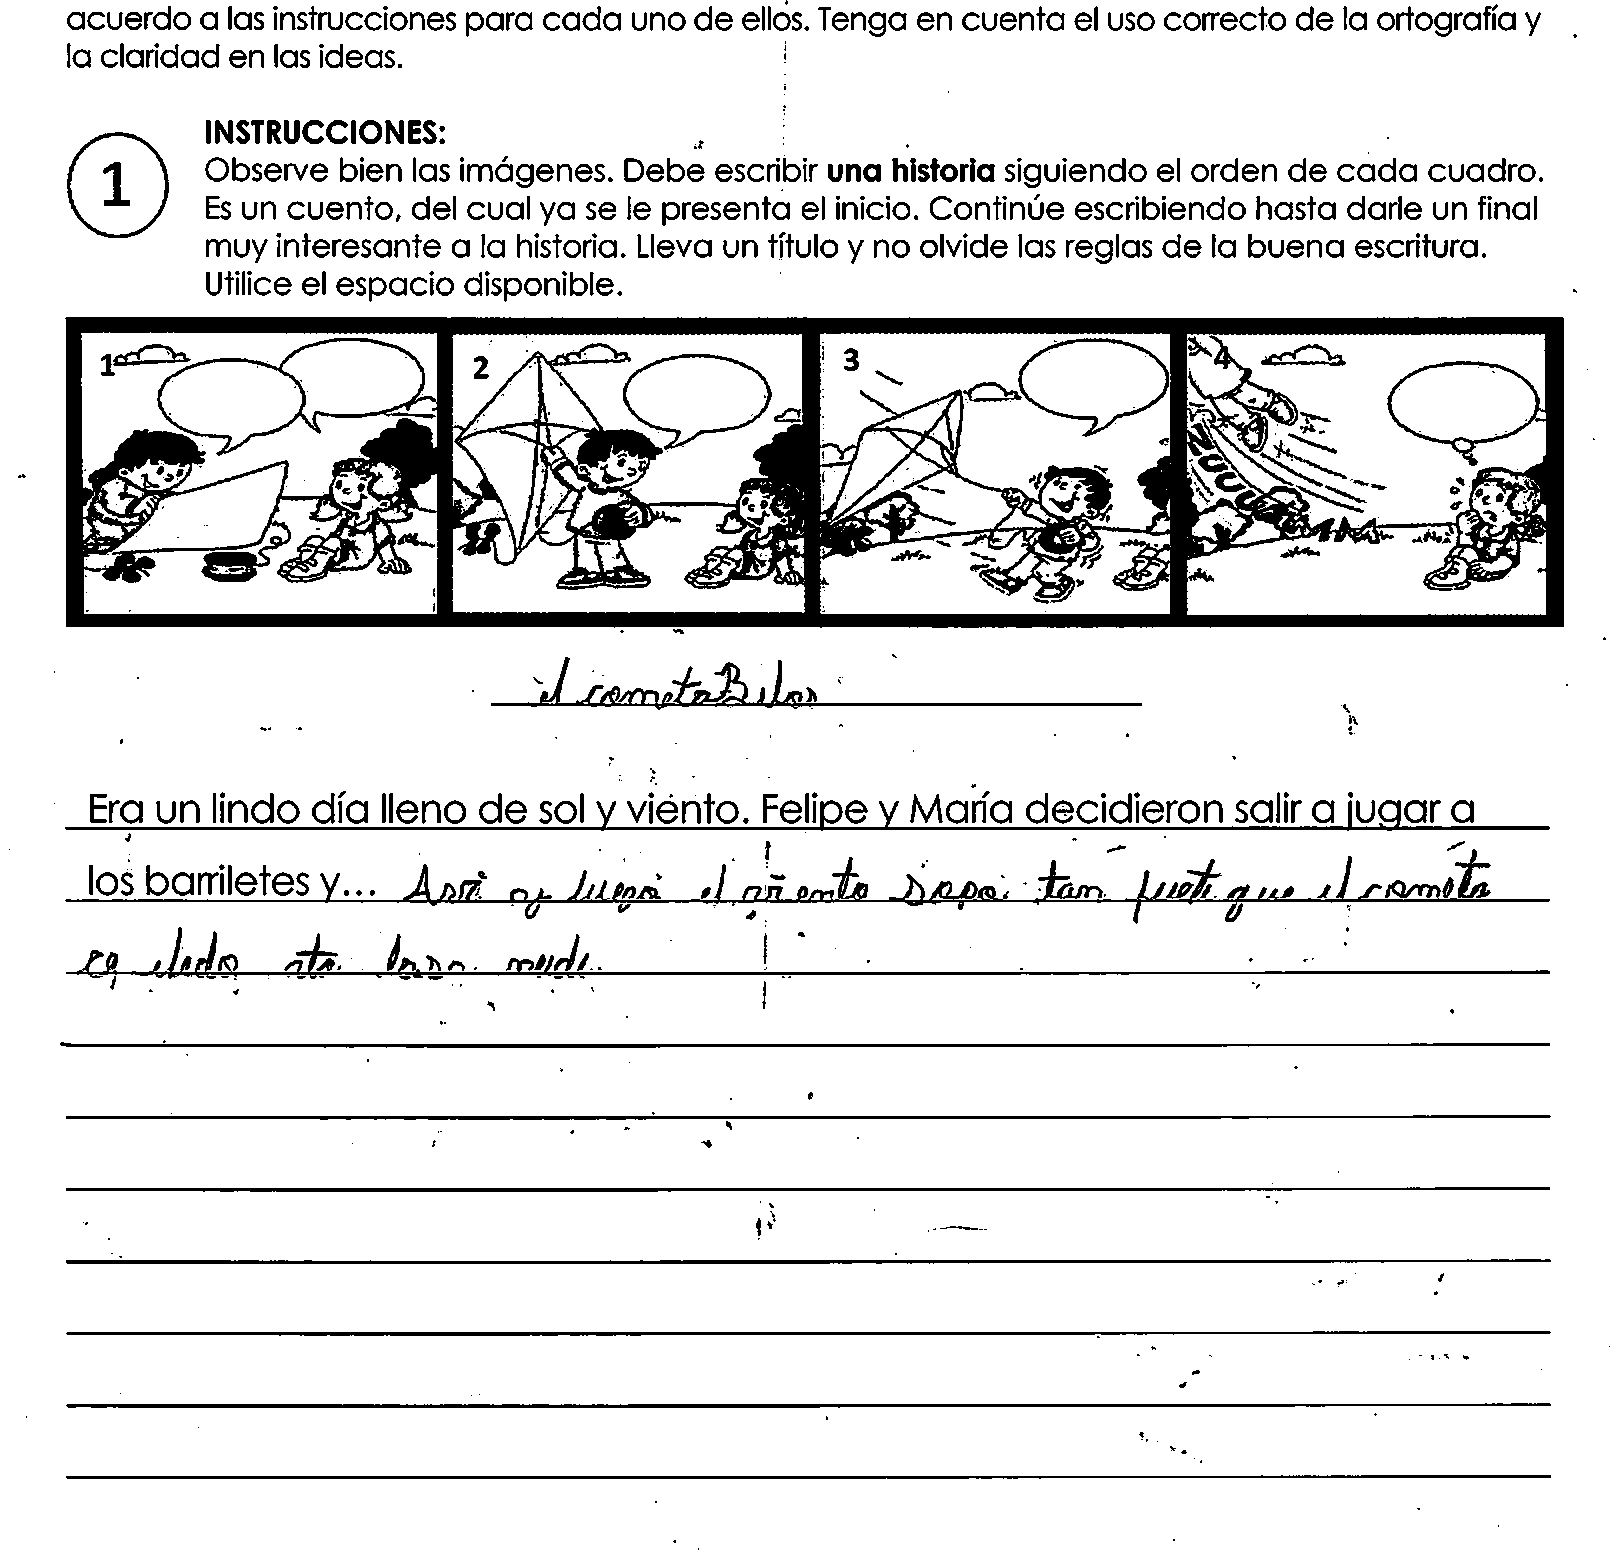 acuerdo a las instrucciones para cada uno de ellos. Tenga en cuenta el uso correcto de la ortografía y
la claridad en las ideas.
INSTRUCCIONES:
1
Observe bien las imágenes. Debe escribir una historia siguiendo el orden de cada cuadro.
Es un cuento, del cual ya se le presenta el inicio. Continúe escribiendo hasta darle un final
muy interesante a la historia. Lleva un título y no olvide las reglas de la buena escritura.
Utilice el espacio disponible.
1 2 3 4
ZUUUU
el cometa
Era un lindo día lleno de sol y viento. Felipe y María decidieron salir a jugar a
los barriletes y... el viento tan que el cometa